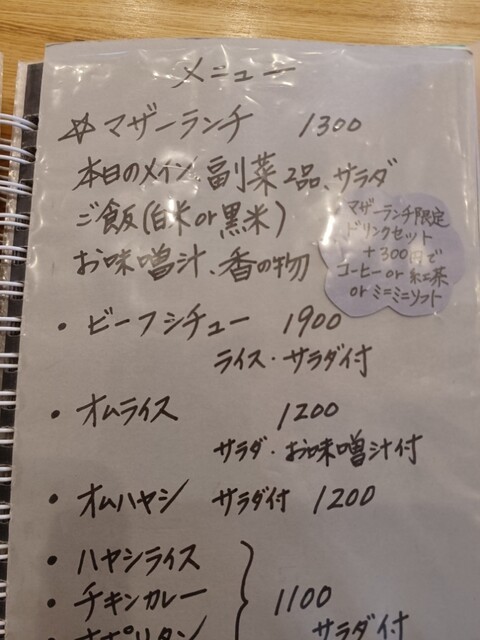 メニュー
☆マザーランチ 1300
本日のメイン、副菜2品、サラダ
ご飯(白米or黒米)
お味噌汁、香の物
マザーランチ限定
ドリンクセット
+300円で
コーヒーor紅茶
orミニミニソフト
・ビーフシチュー 1900
ライス・サラダ付
・オムライス 1200
サラダ・お味噌汁付
・オムハヤシ サラダ付 1200
・ハヤシライス
・チキンカレー
1100
サラダ付